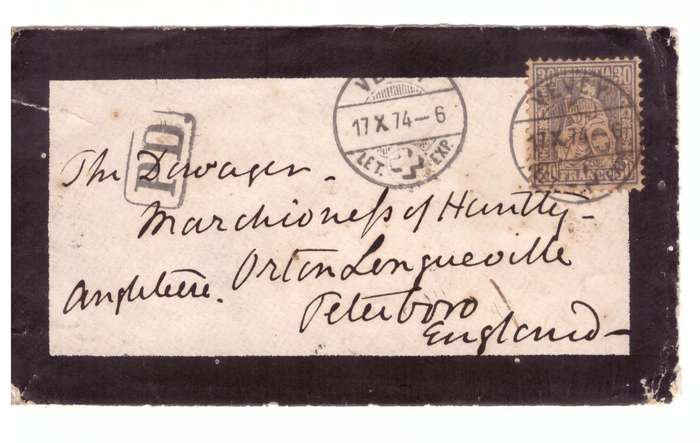 VEVEY
17 X 74 – 6
LET. EXP.
30 30
VEVEY
17 X 74
FRANCO
PD
The Dowager -
Marchioneſs of Huntly -
Orton Longueville
Angleterre.
Peterboro
England -